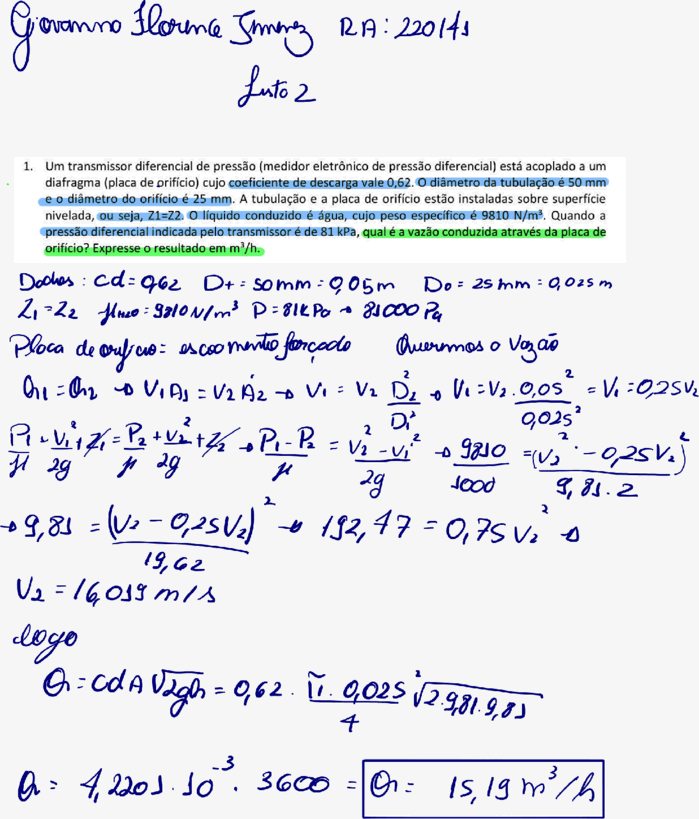 Giovanna Florence Jimenez RA: 220141
Lista 2
1. Um transmissor diferencial de pressão (medidor eletrônico de pressão diferencial) está acoplado a um
diafragma (placa de orifício) cujo coeficiente de descarga vale 0,62. O diâmetro da tubulação é 50 mm
e o diâmetro do orifício é 25 mm. A tubulação e a placa de orifício estão instaladas sobre superfície
nivelada, ou seja, Z1=Z2. O líquido conduzido é água, cujo peso específico é 9810 N/m³. Quando a
pressão diferencial indicada pelo transmissor é de 81 kPa, qual é a vazão conduzida através da placa de
orifício? Expresse o resultado em m³/h.
Dados: Cd = 0,62 Dt = 50mm = 0,05m Do = 25mm = 0,025m
Z1 = Z2 = 9810 N/m³ P = 81kPa → 81000 Pa
Placa de orifício = escoamento forçado Queremos a Vazão
Q1 = Q2 → V1A1 = V2A2 → V1 = V2 D2²/D1² → V1 = V2 . 0,05²/0,025² = V1 = 0,25V2
P1/γ + V1²/2g + Z1 = P2/γ + V2²/2g + Z2 → P1 - P2/γ = V2² - V1²/2g → 9810/1000 = (V2² - 0,25V2)²/9,81.2
→ 9,81 = (V2 - 0,25V2)²/19,62 → 192,47 = 0,75V2² →
V2 = 16,019 m/s
logo
Q = CdA√2gh = 0,62 . π . 0,025²/4 √2.9,81.9,81
Q = 4,2201.10⁻³ . 3600 = Q = 15,19 m³/h